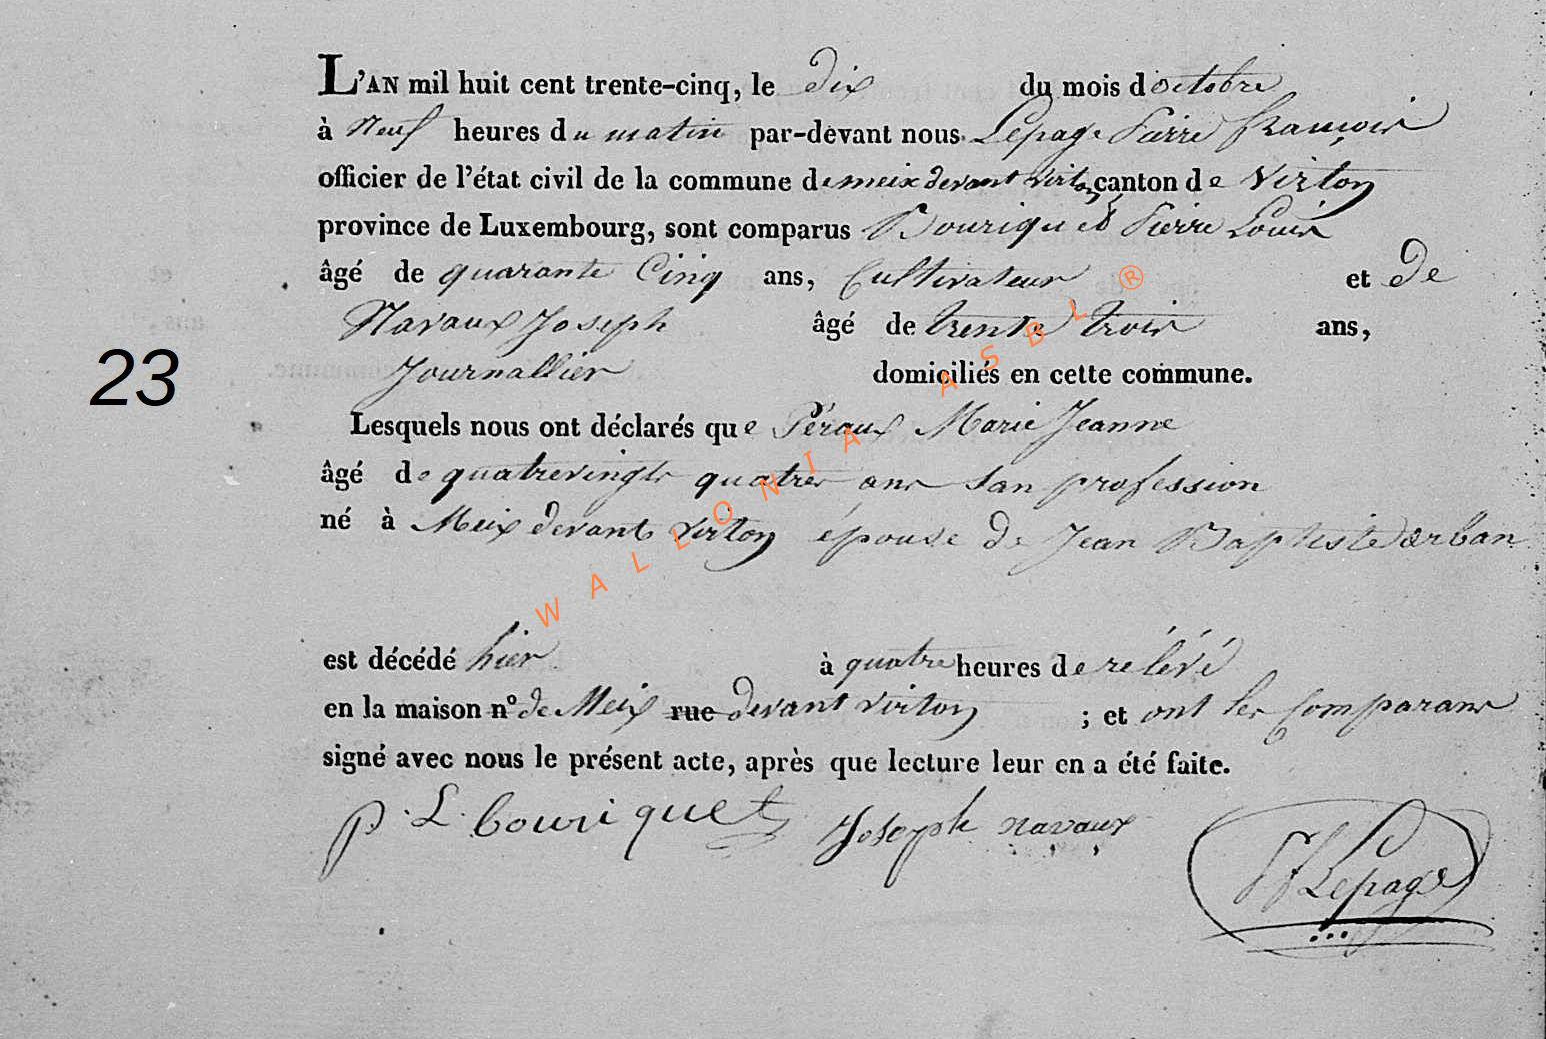 L'AN mil huit cent trente-cinq, le dix du mois d'octobre
à Neuf heures du matin par-devant nous Lepage Pierre françois
officier de l'état civil de la commune de meix devant Virton canton de Virton
province de Luxembourg, sont comparus Bouriquet Pierre Louis
âgé de quarante Cinq ans, Cultivateur et De
Navaux Joseph âgé de trente trois ans,
23
Journallier domiciliés en cette commune.
Lesquels nous ont déclarés que Péraux Marie Jeanne
âgé de quatrevingts quatres ans san profession
né à Meix devant virton épouse de Jean Baptiste
est décédé hier à quatre heures de rélévé
en la maison n° de Meix rue devant virton ; et ont les Comparans
signé avec nous le présent acte, après que lecture leur en a été faite.
P. L. bouriquet Joseph navaux Lepage
WALLONIA ASBL ®